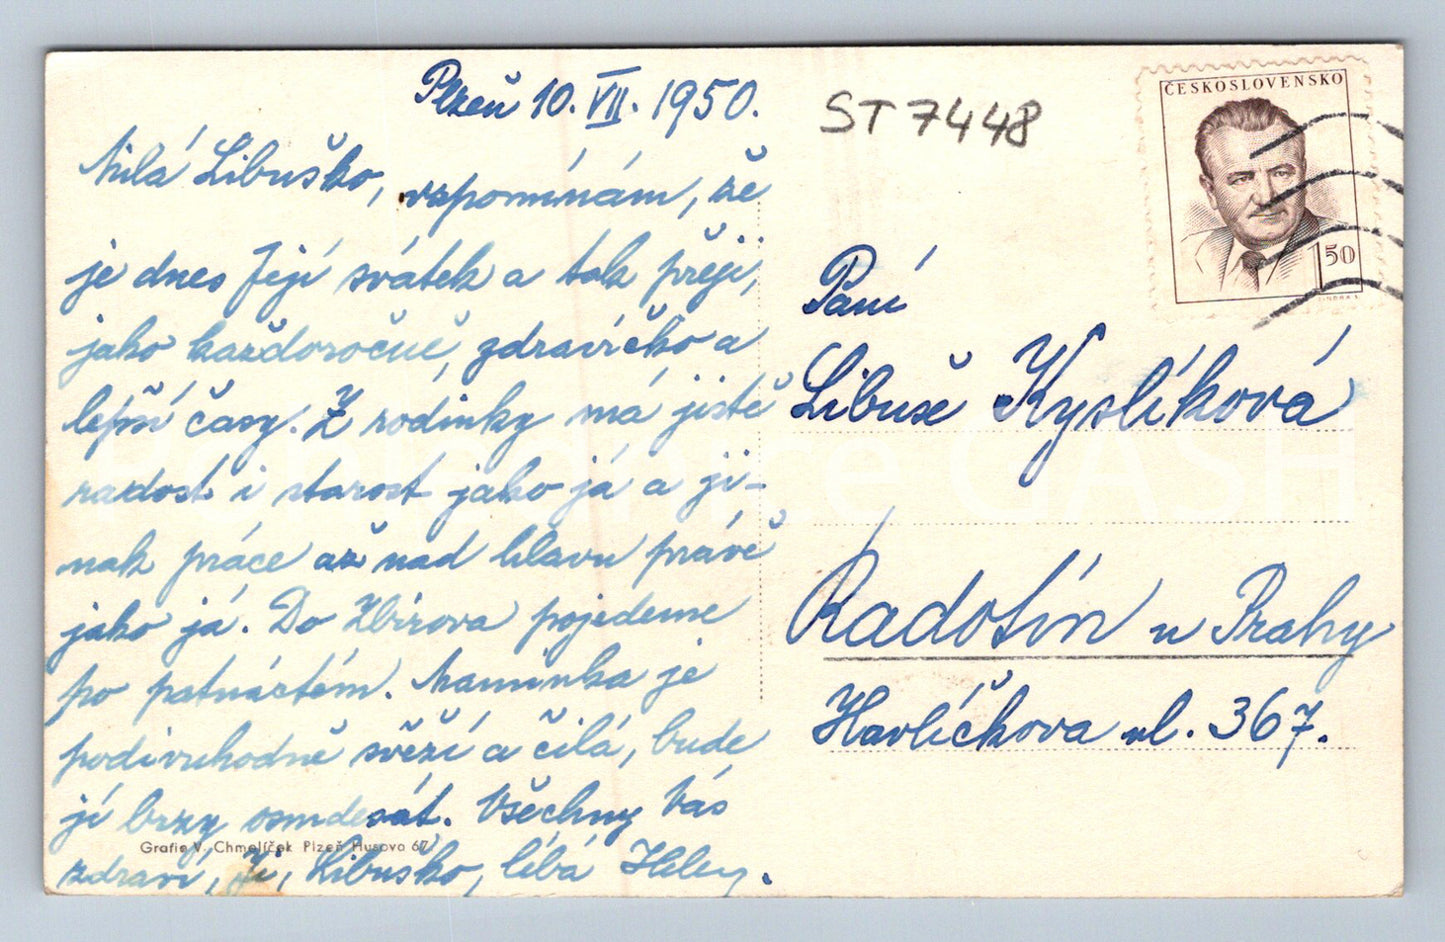 Plzeň 10. VII. 1950.
Milá Libuško, vzpomínám, že
je dnes Její svátek a tak přeji,
jako každoročně, zdravíčko a
lepší časy. Z rodinky má jistě
radost i starost jako já a ji-
nak práce až nad hlavu právě
jako já. Do Zbirova pojedeme
po patnáctém. Maminka je
podivuhodně svěží a čilá, bude
jí brzy osmdesát. Všechny Vás
zdraví, Ji, Libuško, líbá Heley.
Grafie V. Chmelíček Plzeň Husova 67
ST 7448
ČESKOSLOVENSKO
1 50
JINDRA S.
Paní
Libuše Kyslíková
Radotín u Prahy
Havlíčkova ul. 367.
Pohlednice GASH